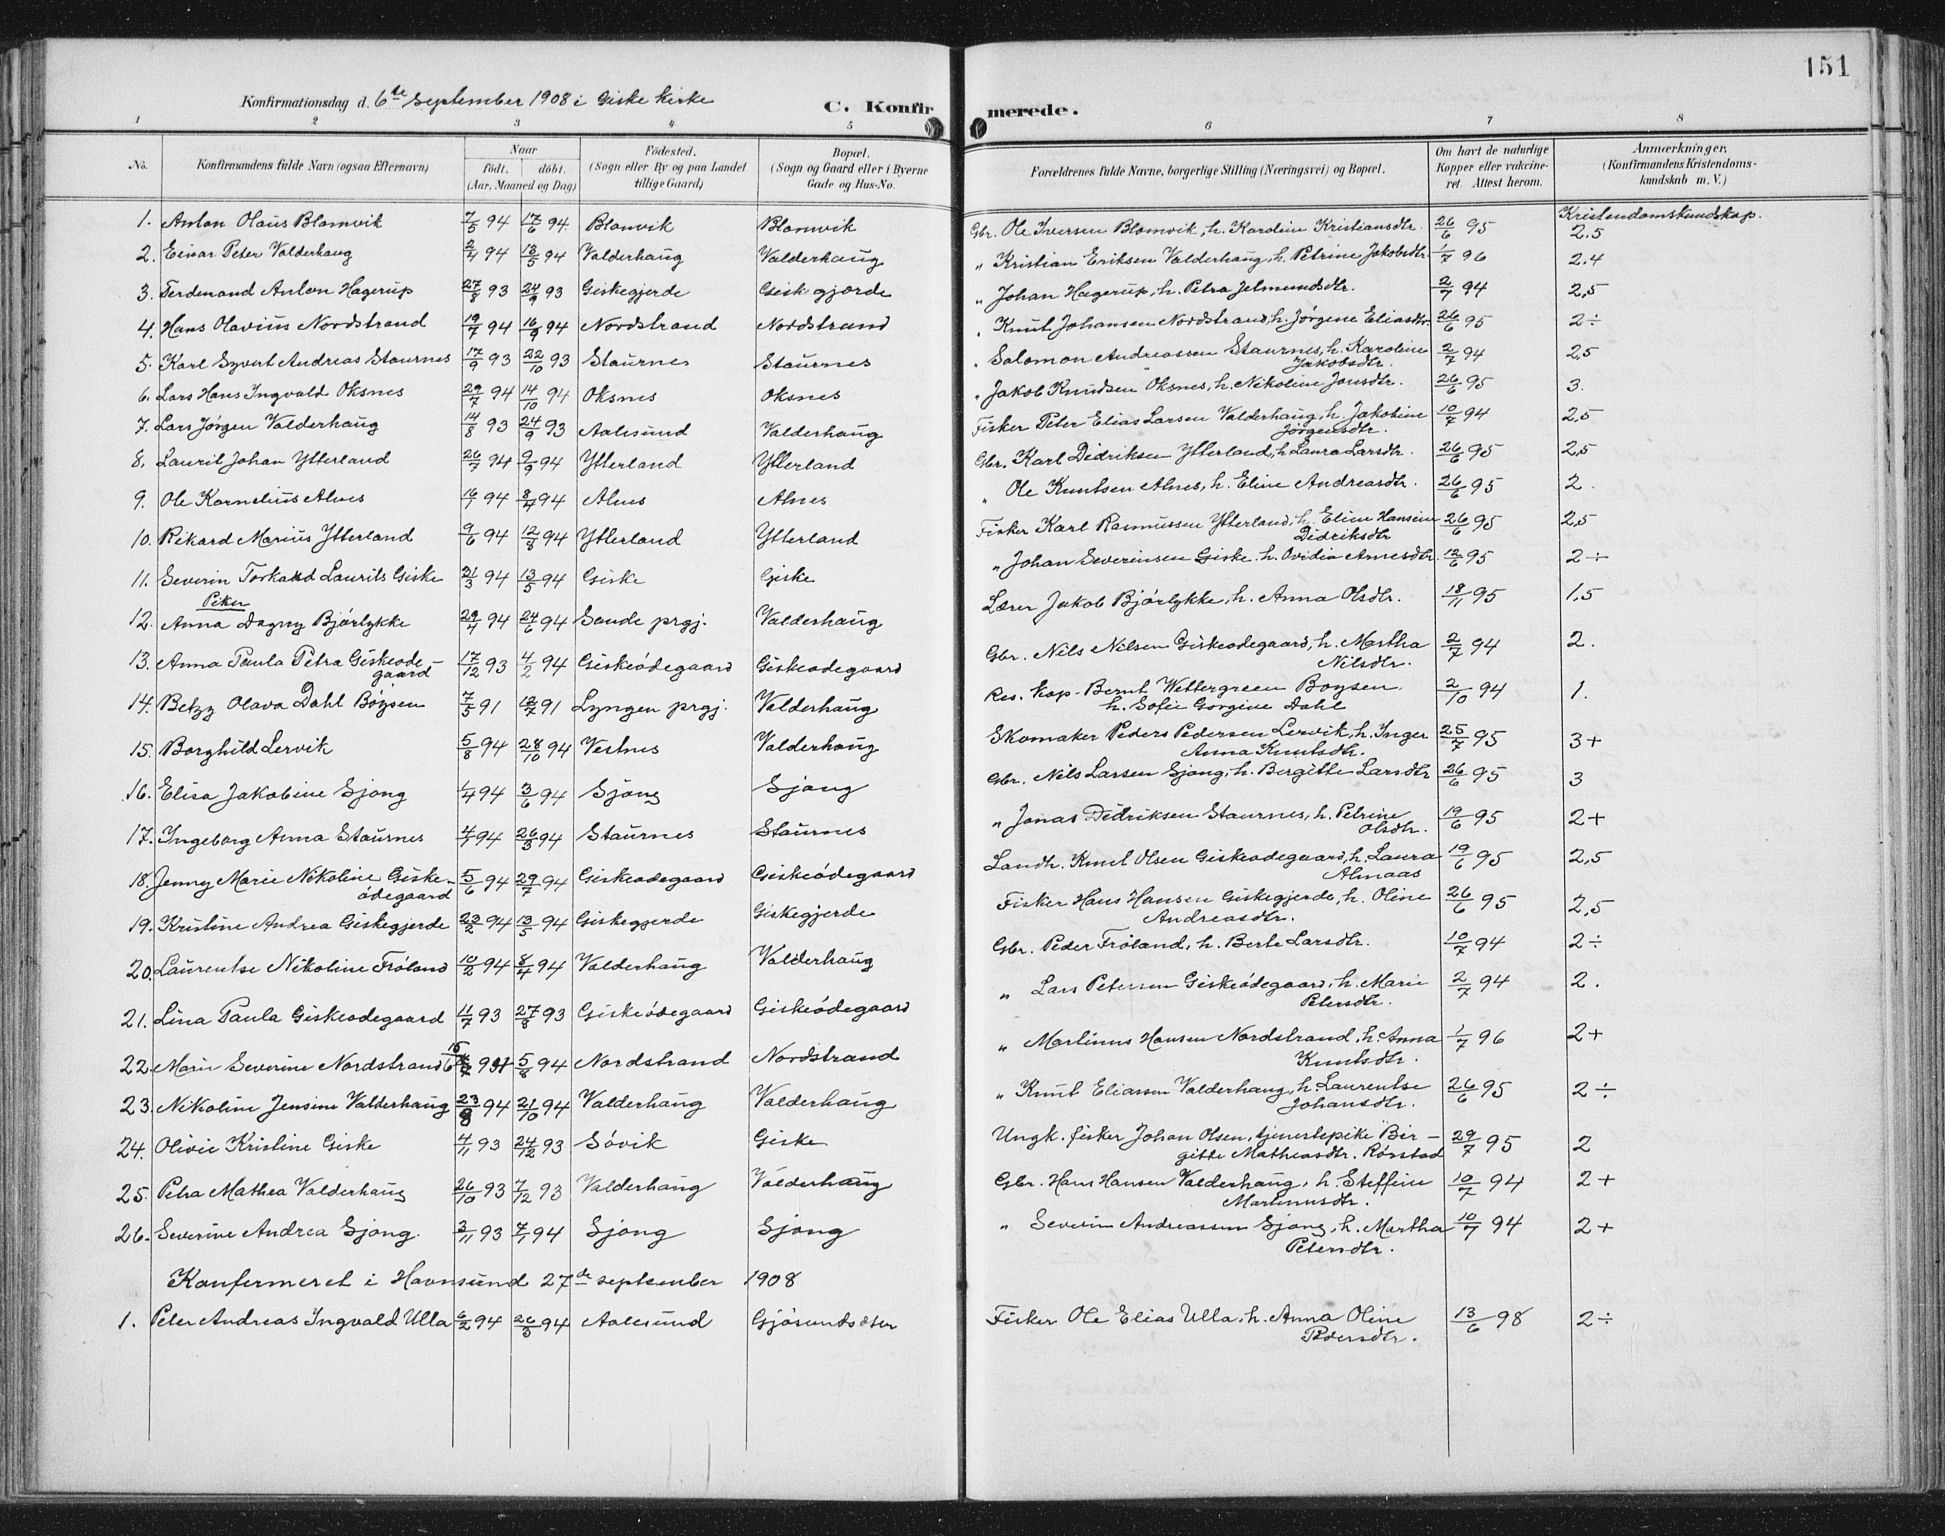 151
Konfirmationsdag d. 6te September 1908 i Giske Kirke
C. Konfirmerede.
1 2 3 4 5 6 7 8
No. Konfirmandens fulde Navn (ogsaa Efternavn) Naar født. døbt. (Aar, Maaned og Dag) Fødested. (Sogn eller By og paa Landet tillige Gaard) Bopæl. (Sogn og Gaard eller i Byerne Gade og Hus-No. Forældrenes fulde Navne, borgerlige Stilling (Næringsvei) og Bopæl. Om havt de naturlige Kopper eller vakcineret. Attest herom. Anmærkninger, (Konfirmandens Kristendomskundskab m. V.)
Kristendomskundskap.
1. Anton Olaus Blomvik 7/5 94 17/6 94 Blomvik Blomvik Gbr. Ole Iversen Blomvik, h. Karoline Kristiansdtr. 26/6 95 2.5
2. Einar Peter Valderhaug 2/4 94 13/5 94 Valderhaug Valderhaug " Kristian Eriksen Valderhaug, h. Petrine Jakobsdtr. 1/7 96 2.4
3. Ferdinand Anton Hagerup 27/8 93 24/9 93 Giskegjerde Giskegjerde " Johan Hagerup, h. Petra Jetmundsdtr. 2/7 94 2,5
4. Hans Olavius Nordstrand 19/7 94 16/9 94 Nordstrand Nordstrand " Knut Johansen Nordstrand, h. Jørgine Eliasdtr. 26/6 95 2÷
5. Karl Syvert Andreas Staurnes 17/9 93 22/10 93 Staurnes Staurnes " Salomon Andreassen Staurnes, h. Karoline Jakobsdtr. 2/7 94 2,5
6. Lars Hans Ingvald Oksnes 29/7 94 14/10 94 Oksnes Oksnes " Jakob Knudsen Oksnes, h. Nikoline Jonsdtr. 26/6 95 3.
7. Lars Jørgen Valderhaug 14/8 93 24/9 93 Aalesund Valderhaug Fisker Peter Elias Larsen Valderhaug, h. Jakobine Jørgensdtr. 10/7 94 2,5
8. Laurits Johan Ytterland 26/7 94 9/9 94 Ytterland Ytterland Gbr. Karl Didriksen Ytterland, h. Laura Larsdtr. 26/6 95 2,5
9. Ole Kornelius Alnes 16/1 94 8/4 94 Alnes Alnes " Ole Knutsen Alnes, h. Eline Andreasdtr. 26/6 95 2.
10. Rikard Marius Ytterland 9/6 94 12/8 94 Ytterland Ytterland Fisker Karl Rasmussen Ytterland, h. Eline Hansine Didriksdtr 26/6 95 2,5
11. Severin Torkald Laurits Giske 21/3 94 13/5 94 Giske Giske " Johan Severinsen Giske, h. Ovidia Arnesdtr. 12/6 95 2÷
Piker
12. Anna Dagny Bjørlykke 29/4 94 24/6 94 Sande prgj. Valderhaug Lærer Jakob Bjørlykke, h. Anna Olsdtr. 18/11 95 1,5
13. Anna Paula Petra Giskeødegaard 17/12 93 4/2 94 Giskeødegaard Giskeødegaard Gbr. Nils Nilsen Giskeødegaard, h. Martha Nilsdtr. 2/7 94 2.
14. Betzy Olava Dahl Bøysen 7/5 91 12/7 91 Lyngen prgj. Valderhaug Res. kap. Bernt Wettergreen Boysen h. Sofie Gorgine Dahl 2/10 94 1.
15. Borghild Lervik 5/8 94 28/10 94 Vestnes Valderhaug Skomaker Peders Pedersen Lervik, h. Inger Anna Knutsdtr. 25/7 95 3+
16. Elisa Jakobine Sjong 1/4 94 3/6 94 Sjong Sjong Gbr. Nils Larsen Sjong, h. Bergitte Larsdtr 26/6 95 3
17. Ingeborg Anna Staurnes 4/1 94 26/3 94 Staurnes Staurnes " Jonas Didriksen Staurnes, h. Petrine Olsdtr. 19/6 95 2+
18. Jenny Marie Nikoline Giskeødegaard 5/6 94 29/7 94 Giskeødegaard Giskeødegaard Landh. Knut Olsen Giskeødegaard, h. Laura Almaas 19/6 95 2,5
19. Kristine Andrea Giskegjerde 22/2 94 13/5 94 Giskegjerde Giskegjerde Fisker Hans Hansen Giskegjerde, h. Oline Andreasdtr. 26/6 95 2,5
20. Laurentse Nikoline Frøland 10/2 94 8/4 94 Valderhaug Valderhaug Gbr. Peder Frøland, h. Berte Larsdtr. 10/7 94 2÷
21. Lina Paula Giskeødegaard 11/7 93 27/8 93 Giskeødegaard Giskeødegaard " Lars Petersen Giskeødegaard, h. Marie Petersdtr. 2/7 94 2.
22. Marie Severine Nordstrand 94 5/8 94 Nordstrand Nordstrand " Martinus Hansen Nordstrand, h. Anna Knutsdtr. 1/7 96 2+
23. Nikoline Jensine Valderhaug 23/8 94 21/10 94 Valderhaug Valderhaug " Knut Eliassen Valderhaug, h. Laurentse Johansdtr. 26/6 95 2÷
24. Olivie Kristine Giske 4/11 93 24/12 93 Søvik Giske Ungk. fisker Johan Olsen, tjenestepike Birgitte Matheasdtr. Rørstad 29/7 95 2
25. Petra Mathea Valderhaug 26/10 93 7/12 93 Valderhaug Valderhaug Gbr. Hans Hansen Valderhaug, h. Steffine Martinusdtr. 10/7 94 2+
26. Severine Andrea Sjong. 3/11 93 7/1 94 Sjong Sjong " Severin Andreassen Sjong, h. Martha Petersdtr. 10/7 94 2+
Konfermeret i Havnsund 27de september 1908
1. Peter Andreas Ingvald Ulla 6/2 94 26/3 94 Aalesund Gjøsundsæter Fisker Ole Elias Ulla, h. Anna Oline Pedersdtr. 13/6 98 2÷